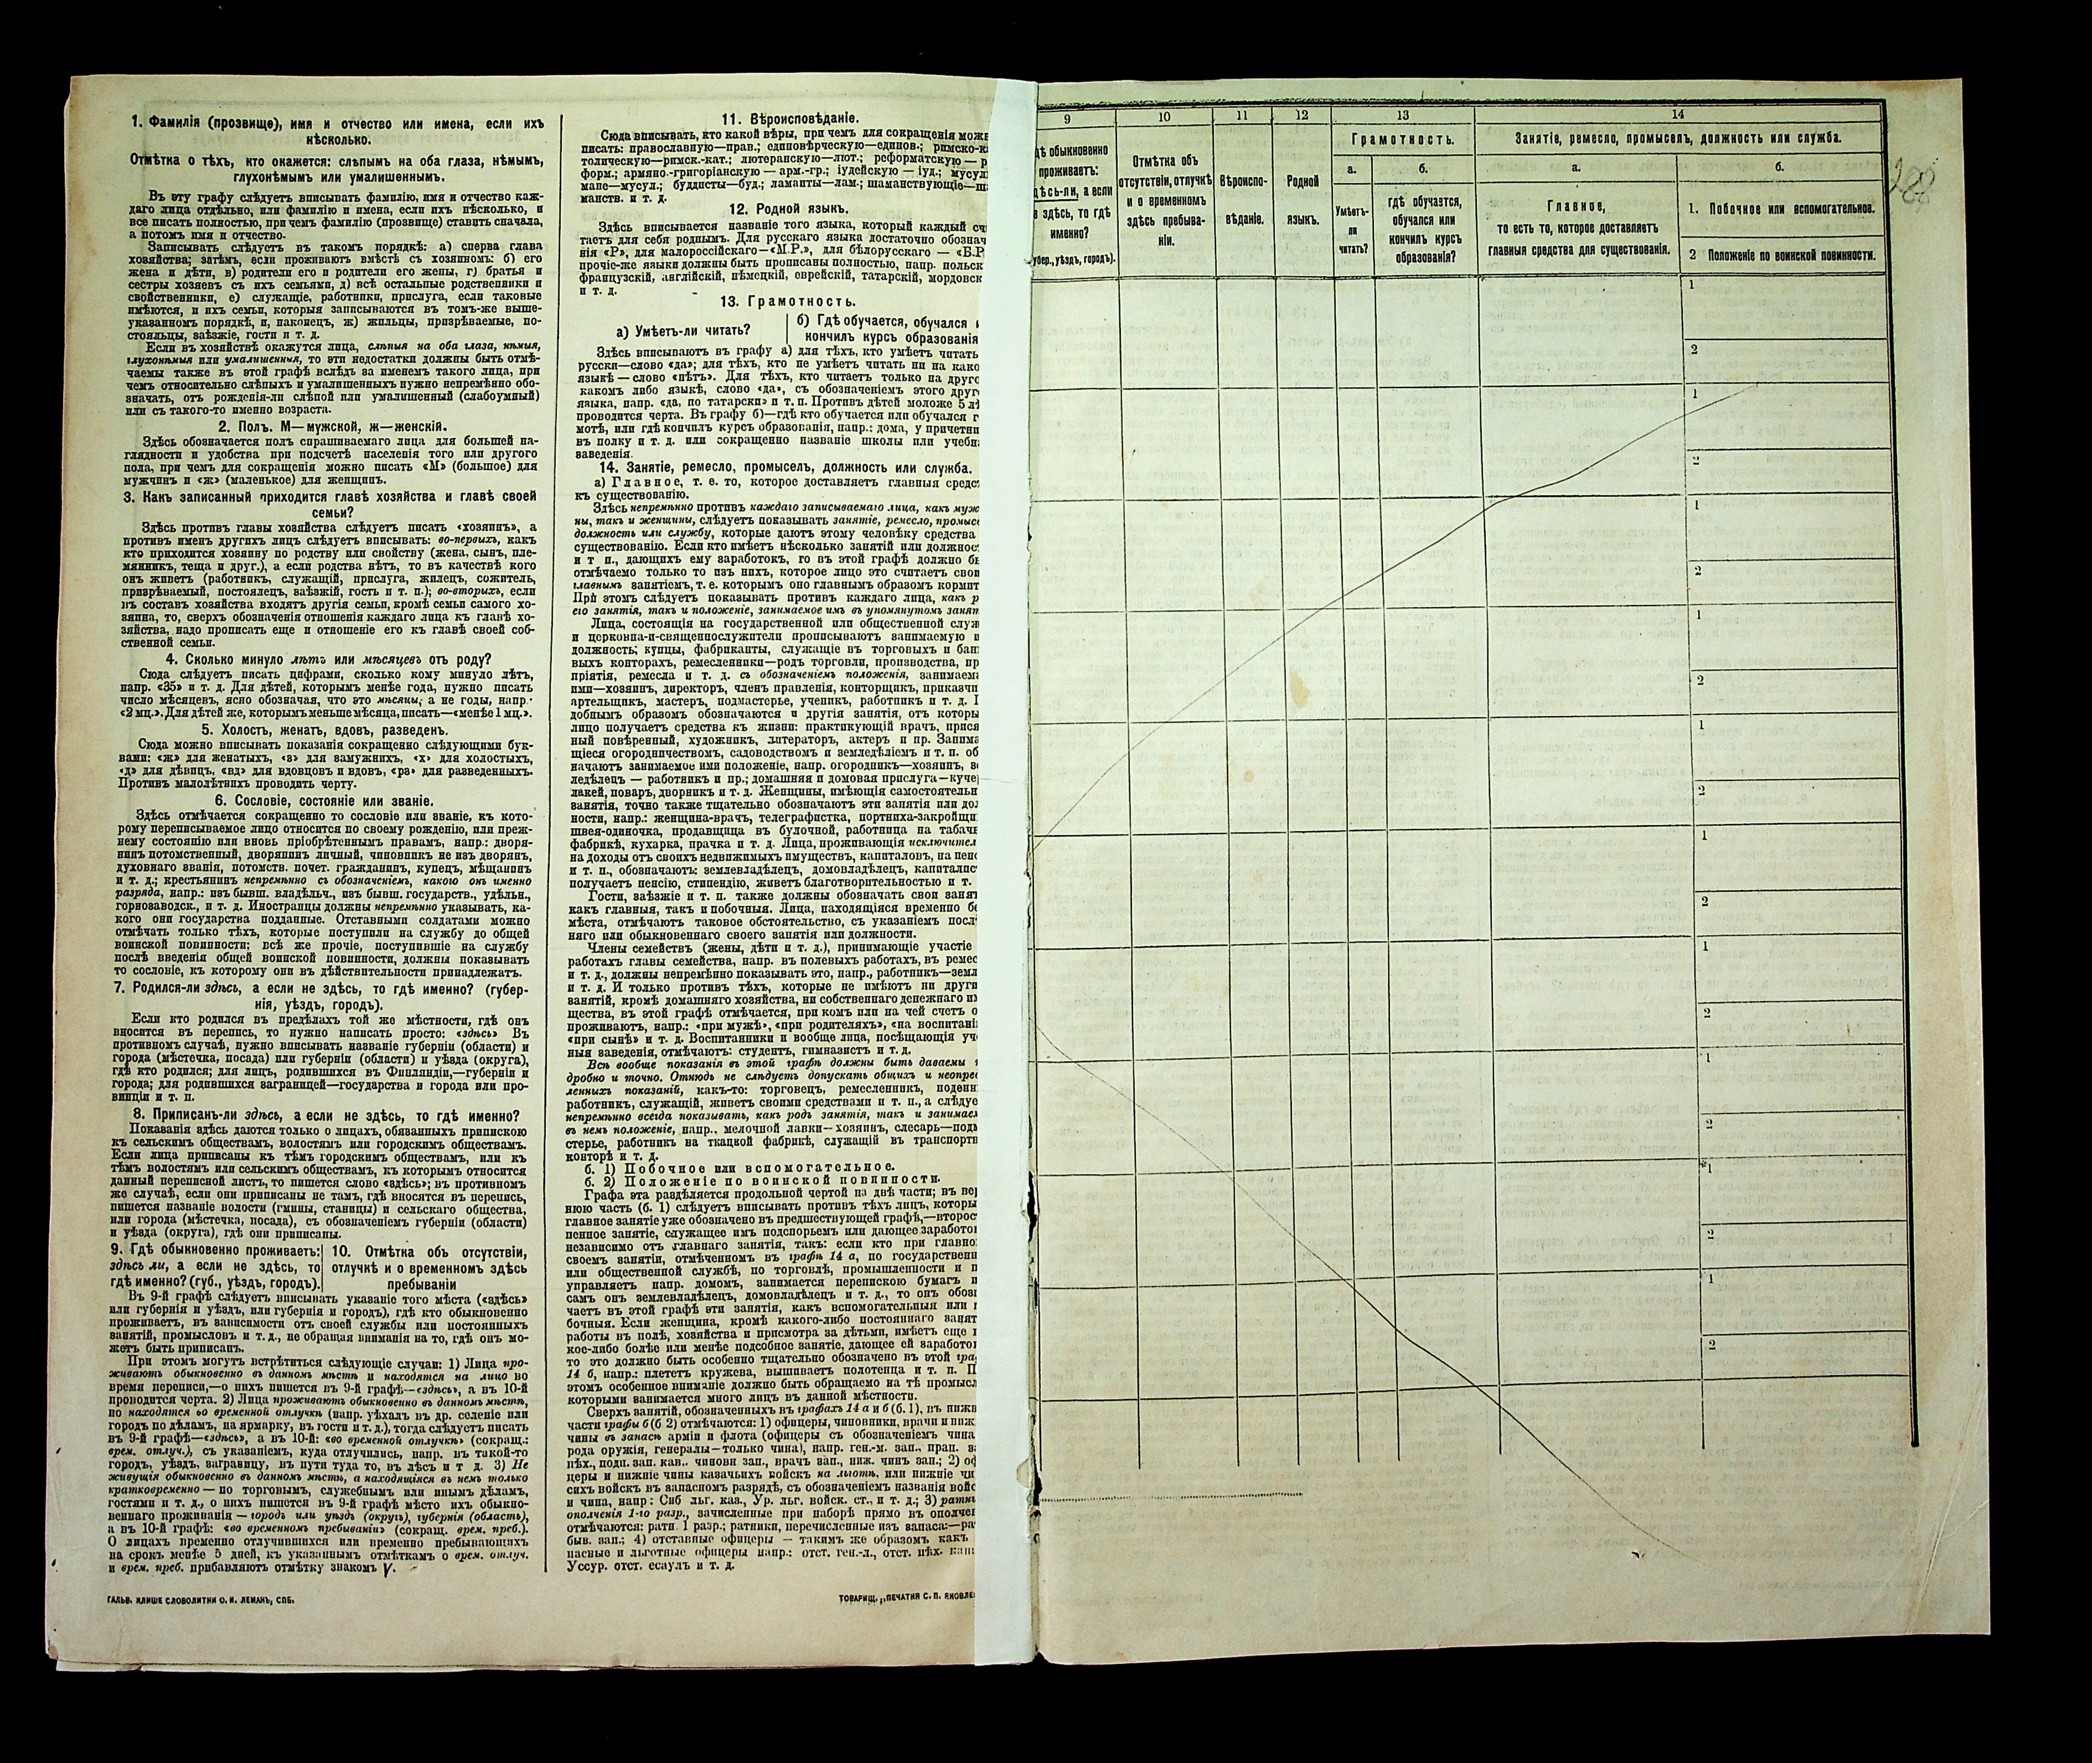 1. Фамилія (прозвище), имя и отчество или имена, если ихъ
нѣсколько.
Отмѣтка о тѣхъ, кто окажется: слѣпымъ на оба глаза, нѣмымъ,
глухонѣмымъ или умалишеннымъ.
Въ эту графу слѣдуетъ вписывать фамилію, имя и отчество каж-
даго лица отдѣльно, или фамилію и имена, если ихъ нѣсколько, и
все писать полностью, при чемъ фамилію (прозвище) ставить сначала,
а потомъ имя и отчество.
Записывать слѣдуетъ въ такомъ порядкѣ: а) сперва глава
хозяйства; затѣмъ, если проживаютъ вмѣстѣ съ хозяиномъ: б) его
жена и дѣти, в) родители его и родители его жены, г) братья и
сестры хозяевъ съ ихъ семьями, д) всѣ остальные родственники и
свойственники, е) служащіе, работники, прислуга, если таковые
имѣются, и ихъ семьи, которыя записываются въ томъ-же выше-
указанномъ порядкѣ, и, наконецъ, ж) жильцы, призрѣваемые, по-
стояльцы, заѣзжіе, гости и т. д.
Если въ хозяйствѣ окажутся лица, слѣпыя на оба глаза, нѣмыя,
глухонѣмыя или умалишенныя, то эти недостатки должны быть отмѣ-
чаемы также въ этой графѣ вслѣдъ за именемъ такого лица, при
чемъ относительно слѣпыхъ и умалишенныхъ нужно непремѣнно обо-
значать, отъ рожденія-ли слѣпой или умалишенный (слабоумный)
или съ такого-то именно возраста.
2. Полъ. М—мужской, ж—женскій.
Здѣсь обозначается полъ спрашиваемаго лица для большей на-
глядности и удобства при подсчетѣ населенія того или другого
пола, при чемъ для сокращенія можно писать «М» (большое) для
мужчинъ и «ж» (маленькое) для женщинъ.
3. Какъ записанный приходится главѣ хозяйства и главѣ своей
семьи?
Здѣсь противъ главы хозяйства слѣдуетъ писать «хозяинъ», а
противъ именъ другихъ лицъ слѣдуетъ вписывать: во-первыхъ, какъ
кто приходится хозяину по родству или свойству (жена, сынъ, пле-
мянникъ, теща и друг.), а если родства нѣтъ, то въ качествѣ кого
онъ живетъ (работникъ, служащій, прислуга, жилецъ, сожитель,
призрѣваемый, постоялецъ, заѣзжій, гость и т. п.); во-вторыхъ, если
въ составъ хозяйства входятъ другія семьи, кромѣ семьи самого хо-
зяина, то, сверхъ обозначенія отношенія каждаго лица къ главѣ хо-
зяйства, надо прописать еще и отношеніе его къ главѣ своей соб-
ственной семьи.
4. Сколько минуло лѣтъ или мѣсяцевъ отъ роду?
Сюда слѣдуетъ писать цифрами, сколько кому минуло лѣтъ,
напр. «35» и т. д. Для дѣтей, которымъ менѣе года, нужно писать
число мѣсяцевъ, ясно обозначая, что это мѣсяцы, а не годы, напр.
«2 мц.». Для дѣтей же, которымъ меньше мѣсяца, писать—«менѣе 1 мц.».
5. Холостъ, женатъ, вдовъ, разведенъ.
Сюда можно вписывать показанія сокращенно слѣдующими бук-
вами: «ж» для женатыхъ, «з» для замужнихъ, «х» для холостыхъ,
«д» для дѣвицъ, «вд» для вдовцовъ и вдовъ, «рз» для разведенныхъ.
Противъ малолѣтнихъ проводить черту.
6. Сословіе, состояніе или званіе.
Здѣсь отмѣчается сокращенно то сословіе или званіе, къ кото-
рому переписываемое лицо относится по своему рожденію, или преж-
нему состоянію или вновь пріобрѣтеннымъ правамъ, напр.: дворя-
нинъ потомственный, дворянинъ личный, чиновникъ не изъ дворянъ,
духовнаго званія, потомств. почет. гражданинъ, купецъ, мѣщанинъ
и т. д.; крестьянинъ непремѣнно съ обозначеніемъ, какого онъ именно
разряда, напр.: изъ бывш. владѣльч., изъ бывш. государств., удѣльн.,
горнозаводск., и т. д. Иностранцы должны непремѣнно указывать, ка-
кого они государства подданные. Отставными солдатами можно
отмѣчать только тѣхъ, которые поступили на службу до общей
воинской повинности; всѣ же прочіе, поступившіе на службу
послѣ введенія общей воинской повинности, должны показывать
то сословіе, къ которому они въ дѣйствительности принадлежатъ.
7. Родился-ли здѣсь, а если не здѣсь, то гдѣ именно? (губер-
нія, уѣздъ, городъ).
Если кто родился въ предѣлахъ той же мѣстности, гдѣ онъ
вносится въ перепись, то нужно написать просто: «здѣсь» Въ
противномъ случаѣ, нужно вписывать названіе губерніи (области) и
города (мѣстечка, посада) или губерніи (области) и уѣзда (округа),
гдѣ кто родился; для лицъ, родившихся въ Финляндіи,—губерніи и
города; для родившихся заграницей—государства и города или про-
винціи и т. п.
8. Приписанъ-ли здѣсь, а если не здѣсь, то гдѣ именно?
Показанія здѣсь даются только о лицахъ, обязанныхъ припискою
къ сельскимъ обществамъ, волостямъ или городскимъ обществамъ.
Если лица приписаны къ тѣмъ городскимъ обществамъ, или къ
тѣмъ волостямъ или сельскимъ обществамъ, къ которымъ относится
данный переписной листъ, то пишется слово «здѣсь»; въ противномъ
же случаѣ, если они приписаны не тамъ, гдѣ вносятся въ перепись,
пишется названіе волости (гмины, станицы) и сельскаго общества,
или города (мѣстечка, посада), съ обозначеніемъ губерніи (области)
и уѣзда (округа), гдѣ они приписаны.
9. Гдѣ обыкновенно проживаетъ:
здѣсь ли, а если не здѣсь, то
гдѣ именно? (губ., уѣздъ, городъ).
10. Отмѣтка объ отсутствіи,
отлучкѣ и о временномъ здѣсь
пребываніи
Въ 9-й графѣ слѣдуетъ вписывать указаніе того мѣста («здѣсь»
или губернія и уѣздъ, или губернія и городъ), гдѣ кто обыкновенно
проживаетъ, въ зависимости отъ своей службы или постоянныхъ
занятій, промысловъ и т. д., не обращая вниманія на то, гдѣ онъ мо-
жетъ быть приписанъ.
При этомъ могутъ встрѣтиться слѣдующіе случаи: 1) Лица про-
живаютъ обыкновенно въ данномъ мѣстѣ и находятся на лицо во
время переписи,—о нихъ пишется въ 9-й графѣ—«здѣсь», а въ 10-й
проводится черта. 2) Лица проживаютъ обыкновенно въ данномъ мѣстѣ,
но находятся во временной отлучкѣ (напр. уѣхалъ въ др. селеніе или
городъ по дѣламъ, на ярмарку, въ гости и т. д.), тогда слѣдуетъ писать
въ 9-й графѣ—«здѣсь», а въ 10-й: «во временной отлучкѣ» (сокращ.:
врем. отлуч.), съ указаніемъ, куда отлучились, напр. въ такой-то
городъ, уѣздъ, заграницу, въ пути туда то, въ лѣсъ и т д. 3) Не
живущія обыкновенно въ данномъ мѣстѣ, а находящіяся въ немъ только
кратковременно — по торговымъ, служебнымъ или инымъ дѣламъ,
гостями и т. д., о нихъ пишется въ 9-й графѣ мѣсто ихъ обыкно-
веннаго проживанія — городъ или уѣздъ (округъ), губернія (область),
а въ 10-й графѣ: «во временномъ пребываніи» (сокращ. врем. преб.).
О лицахъ временно отлучившихся или временно пребывающихъ
на срокъ менѣе 5 дней, къ указаннымъ отмѣткамъ о врем. отлуч.
и врем. преб. прибавляютъ отмѣтку знакомъ V.
ГАЛЬВ. КЛИШЕ СЛОВОЛИТНИ О. И. ЛЕМАНЪ, СПБ.
11. Вѣроисповѣданіе.
Сюда вписывать, кто какой вѣры, при чемъ для сокращенія може
писать: православную—прав.; единовѣрческую—единов.; римско-к
толическую—римск.-кат.; лютеранскую—лют.; реформатскую — р
форм.; армяно.-григоріанскую — арм.-гр.; іудейскую — іуд.; мусул
мане—мусул.; буддисты—буд.; ламаиты—лам.; шаманствующіе—ш
манств. и т. д.
12. Родной языкъ.
Здѣсь вписывается названіе того языка, который каждый сч
таетъ для себя роднымъ. Для русскаго языка достаточно обознач
нія «Р», для малороссійскаго—«М.Р.», для бѣлорусскаго — «Б.Р
прочіе-же языки должны быть прописаны полностью, напр. польск
французскій, англійскій, нѣмецкій, еврейскій, татарскій, мордовск
и т. д.
13. Грамотность.
а) Умѣетъ-ли читать?
б) Гдѣ обучается, обучался и
кончилъ курсъ образованія
Здѣсь вписываютъ въ графу а) для тѣхъ, кто умѣетъ читать
русски—слово «да»; для тѣхъ, кто не умѣетъ читать ни на како
языкѣ — слово «нѣтъ». Для тѣхъ, кто читаетъ только на друго
какомъ либо языкѣ, слово «да», съ обозначеніемъ этого друг
языка, напр. «да, по татарски» и т. п. Противъ дѣтей моложе 5 лѣ
проводится черта. Въ графу б)—гдѣ кто обучается или обучался г
мотѣ, или гдѣ кончилъ курсъ образованія, напр.: дома, у причетни
въ полку и т. д. или сокращенно названіе школы или учебн
заведенія.
14. Занятіе, ремесло, промыселъ, должность или служба.
а) Главное, т. е. то, которое доставляетъ главныя средс
къ существованію.
Здѣсь непремѣнно противъ каждаго записываемаго лица, какъ муж
ны, такъ и женщины, слѣдуетъ показывать занятіе, ремесло, промыс
должность или службу, которые даютъ этому человѣку средства
существованію. Если кто имѣетъ нѣсколько занятій или должнос
и т п., дающихъ ему заработокъ, то въ этой графѣ должно б
отмѣчаемо только то изъ нихъ, которое лицо это считаетъ свои
главнымъ занятіемъ, т. е. которымъ оно главнымъ образомъ кормит
При этомъ слѣдуетъ показывать противъ каждаго лица, какъ р
его занятія, такъ и положеніе, занимаемое имъ въ упомянутомъ занят
Лица, состоящія на государственной или общественной служ
и церковна-и-священнослужители прописываютъ занимаемую и
должность; купцы, фабриканты, служащіе въ торговыхъ и бан
выхъ конторахъ, ремесленники—родъ торговли, производства, пр
пріятія, ремесла и т. д. съ обозначеніемъ положенія, занимаем
ими—хозяинъ, директоръ, членъ правленія, конторщикъ, приказчи
артельщикъ, мастеръ, подмастерье, ученикъ, работникъ и т. д. П
добнымъ образомъ обозначаются и другія занятія, отъ которы
лицо получаетъ средства къ жизни: практикующій врачъ, прися
ный повѣренный, художникъ, литераторъ, актеръ и пр. Занима
щіеся огородничествомъ, садоводствомъ и земледѣліемъ и т. п. об
начаютъ занимаемое ими положеніе, напр. огородникъ—хозяинъ, з
ледѣлецъ — работникъ и пр.; домашняя и домовая прислуга—куче
лакей, поваръ, дворникъ и т. д. Женщины, имѣющія самостоятельн
занятія, точно также тщательно обозначаютъ эти занятія или дол
ности, напр.: женщина-врачъ, телеграфистка, портниха-закройщи
швея-одиночка, продавщица въ булочной, работница на табачн
фабрикѣ, кухарка, прачка и т. д. Лица, проживающія исключител
на доходы отъ своихъ недвижимыхъ имуществъ, капиталовъ, на пенс
и т. п., обозначаютъ: землевладѣлецъ, домовладѣлецъ, капиталис
получаетъ пенсію, стипендію, живетъ благотворительностью и т.
Гости, заѣзжіе и т. п. также должны обозначать свои занят
какъ главныя, такъ и побочныя. Лица, находящіяся временно б
мѣста, отмѣчаютъ таковое обстоятельство, съ указаніемъ посл
няго или обыкновеннаго своего занятія или должности.
Члены семействъ (жены, дѣти и т. д.), принимающіе участіе
работахъ главы семейства, напр. въ полевыхъ работахъ, въ ремес
и т. д., должны непремѣнно показывать это, напр., работникъ—земл
и т. д. И только противъ тѣхъ, которые не имѣютъ ни други
занятій, кромѣ домашняго хозяйства, ни собственнаго денежнаго и
щества, въ этой графѣ отмѣчается, при комъ или на чей счетъ о
проживаютъ, напр.: «при мужѣ», «при родителяхъ», «на воспитані
«при сынѣ» и т. д. Воспитанники и вообще лица, посѣщающія уч
ныя заведенія, отмѣчаютъ: студентъ, гимназистъ и т. д.
Всѣ вообще показанія въ этой графѣ должны быть даваемы
дробно и точно. Отнюдь не слѣдуетъ допускать общихъ и неопре
ленныхъ показаній, какъ-то: торговецъ, ремесленникъ, поденн
работникъ, служащій, живетъ своими средствами и т. п., а слѣдуе
непремѣнно всегда показывать, какъ родъ занятія, такъ и занимаем
въ немъ положеніе, напр., мелочной лавки—хозяинъ, слесарь—подм
стерье, работникъ на ткацкой фабрикѣ, служащій въ транспортн
конторѣ и т. д.
б. 1) Побочное или вспомогательное.
б. 2) Положеніе по воинской повинности.
Графа эта раздѣляется продольной чертой на двѣ части; въ вер
нюю часть (б. 1) слѣдуетъ вписывать противъ тѣхъ лицъ, которы
главное занятіе уже обозначено въ предшествующей графѣ,—второс
пенное занятіе, служащее имъ подспорьемъ или дающее заработо
независимо отъ главнаго занятія, такъ: если кто при главно
своемъ занятіи, отмѣченномъ въ графѣ 14 а, по государственн
или общественной службѣ, по торговлѣ, промышленности и п
управляетъ напр. домомъ, занимается перепискою бумагъ и
самъ онъ землевладѣлецъ, домовладѣлецъ и т. д., то онъ обозн
чаетъ въ этой графѣ эти занятія, какъ вспомогательныя или п
бочныя. Если женщина, кромѣ какого-либо постояннаго занят
работы въ полѣ, хозяйства и присмотра за дѣтьми, имѣетъ еще к
кое-либо болѣе или менѣе подсобное занятіе, дающее ей заработо
то это должно быть особенно тщательно обозначено въ этой гра
14 б, напр.: плететъ кружева, вышиваетъ полотенца и т. п. П
этомъ особенное вниманіе должно быть обращаемо на тѣ промысл
которыми занимается много лицъ въ данной мѣстности.
Сверхъ занятій, обозначенныхъ въ графахъ 14 а и б (б. 1), въ нижн
части графы б (б 2) отмѣчаются: 1) офицеры, чиновники, врачи и ниж
чины въ запасѣ арміи и флота (офицеры съ обозначеніемъ чина
рода оружія, генералы—только чина), напр. ген.-м. зап., прап. з
пѣх., подп. зап. кав., чиновн зап., врачъ зап., ниж. чинъ зап.; 2) оф
церы и нижніе чины казачьихъ войскъ на льготѣ, или нижніе чи
сихъ войскъ въ запасномъ разрядѣ, съ обозначеніемъ названія войс
и чина, напр: Сиб льг. каз., Ур. льг. войск. ст., и т. д.; 3) ратн
ополченія 1-го разр., зачисленные при наборѣ прямо въ ополче
отмѣчаются: ратн. 1 разр.; ратники, перечисленные изъ запаса:—ра
быв. зап.; 4) отставные офицеры — такимъ же образомъ какъ
пасные и льготные офицеры напр.: отст. ген.-л., отст. пѣх. кап
Уссур. отст. есаулъ и т. д.
ТОВАРИЩ. „ПЕЧАТНЯ С. П. ЯКОВЛЕ
9
10
11
12
13
14
дѣ обыкновенно
проживаетъ:
дѣсь-ли, а если
е здѣсь, то гдѣ
именно?
убер., уѣздъ, городъ).
Отмѣтка объ
отсутствіи, отлучкѣ
и о временномъ
здѣсь пребыва-
ніи.
Вѣроиспо-
вѣданіе.
Родной
языкъ.
Грамотность.
а.
б.
Умѣетъ-
ли
читать?
гдѣ обучается,
обучался или
кончилъ курсъ
образованія?
Занятіе, ремесло, промыселъ, должность или служба.
а.
б.
Главное,
то есть то, которое доставляетъ
главныя средства для существованія.
1. Побочное или вспомогательное.
2 Положеніе по воинской повинности.
1
2
1
2
1
2
1
2
1
2
1
2
1
2
1
2
1
2
1
2
288